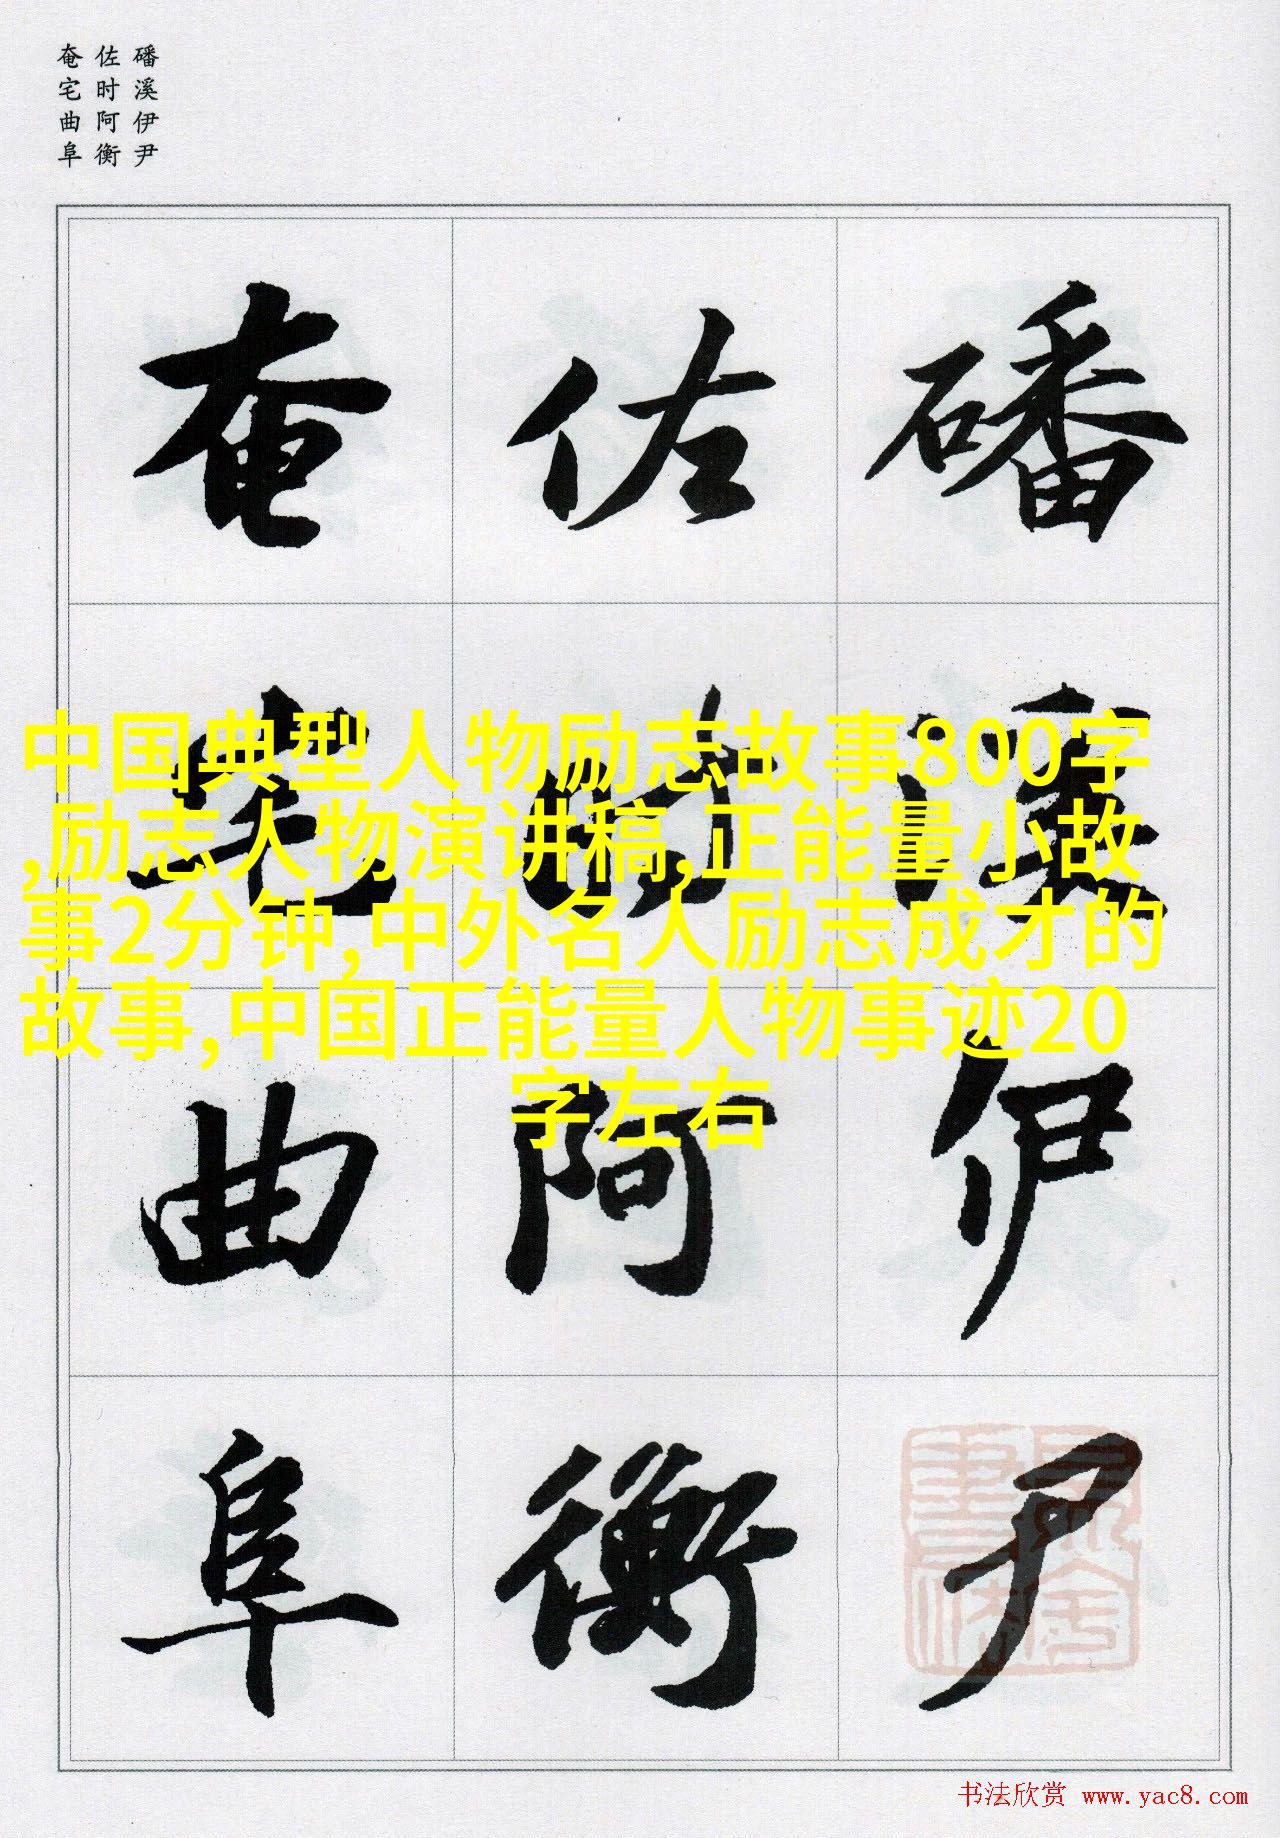 磻溪伊尹
佐时阿衡
奄宅曲阜
磻溪伊尹
佐时阿衡
奄宅曲阜
中国典型人物励志故事800字
,励志人物演讲稿,正能量小故
事2分钟,中外名人励志成才的
故事,中国正能量人物事迹20
字左右
书法欣赏 www.yac8.com